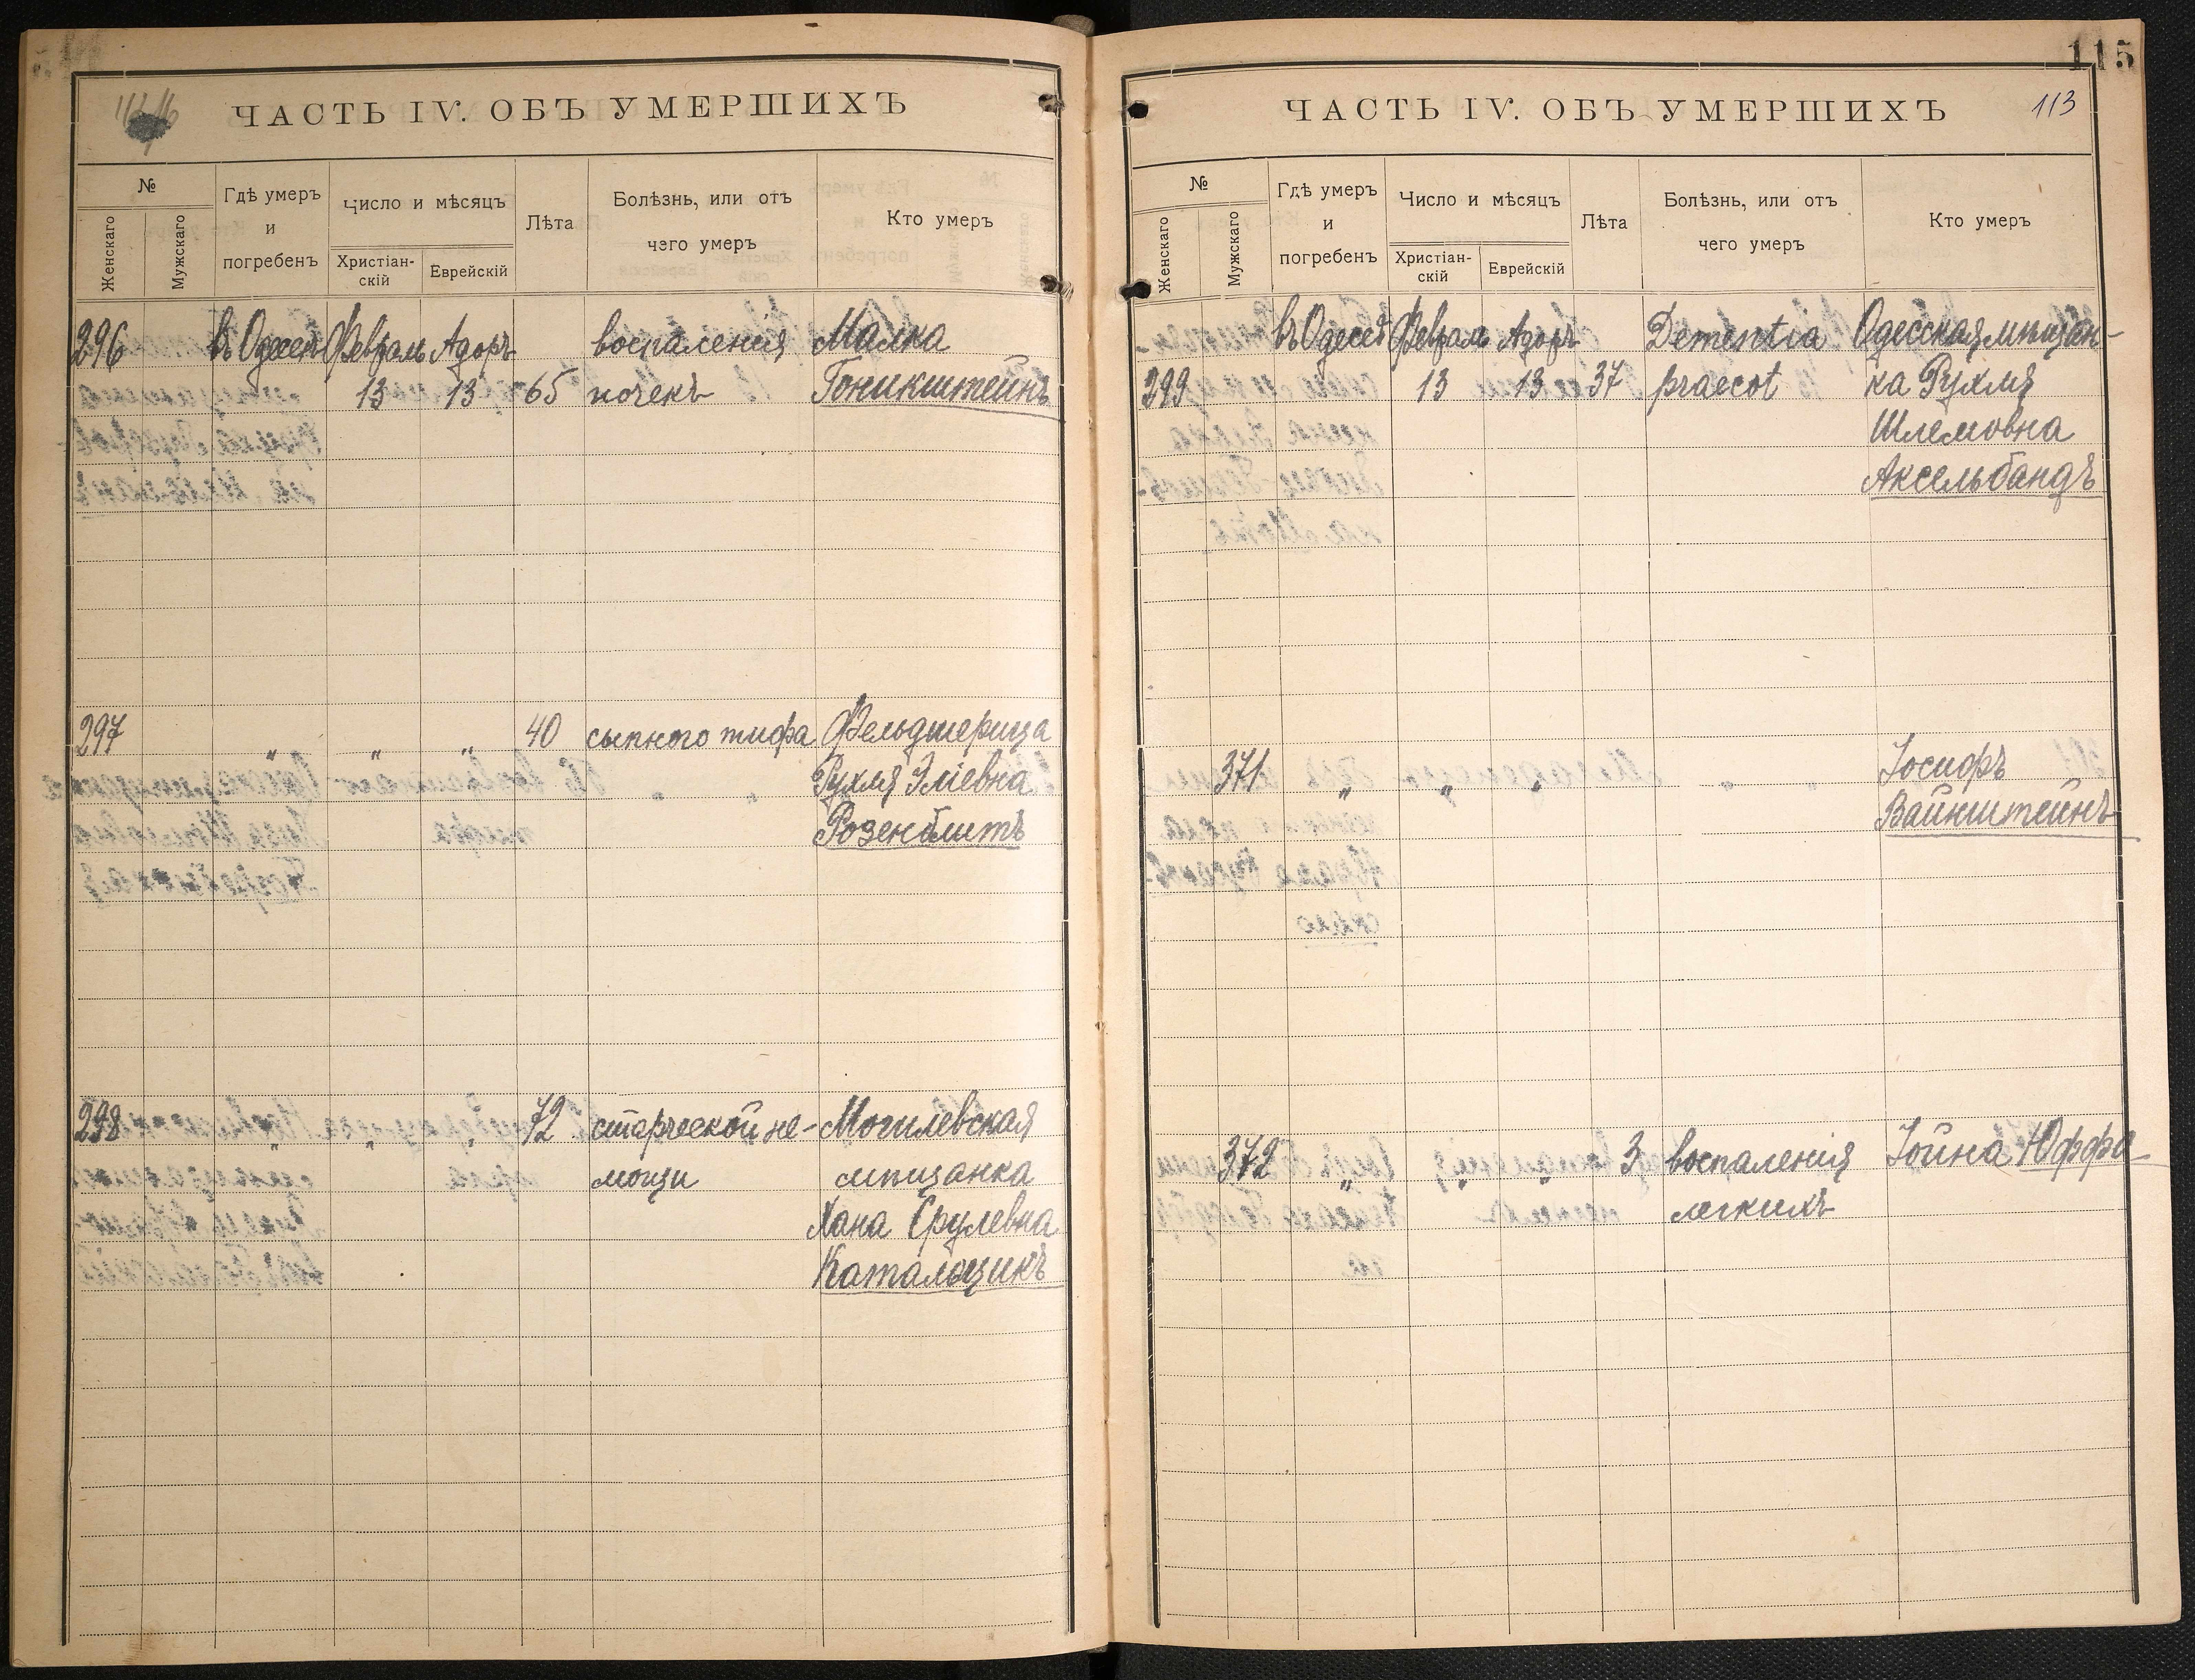 ЧАСТЬ IV. ОБЪ УМЕРШИХЪ
№
Женскаго
Мужскаго
Гдѣ умеръ
и
погребенъ
Число и мѣсяцъ
Христіан-
скій
Еврейскій
Лѣта
Болѣзнь, или отъ
чего умеръ
Кто умеръ
296 въ Одессѣ Февраль Адоръ воспаленія Малка
13 13 65 почекъ Гоникштейнъ
297 " " " 40 сыпного тифа Фельдшерица
Рухля Эліевна
Розенблитъ
298 " " " 72 старческой не- Могилевская
мощи мѣщанка
Хана Срулевна
Катальщикъ
115
ЧАСТЬ IV. ОБЪ УМЕРШИХЪ 113
№
Женскаго
Мужскаго
Гдѣ умеръ
и
погребенъ
Число и мѣсяцъ
Христіан-
скій
Еврейскій
Лѣта
Болѣзнь, или отъ
чего умеръ
Кто умеръ
въ Одессѣ Февраль Адоръ Dementia Одесская мѣщан-
299 13 13 37 praecot ка Рухля
Шлемовна
Аксельбандъ
371 " " " Іосифъ
Вайнштейнъ
372 " " " 3 воспаленія Іойна Юффа
легкихъ